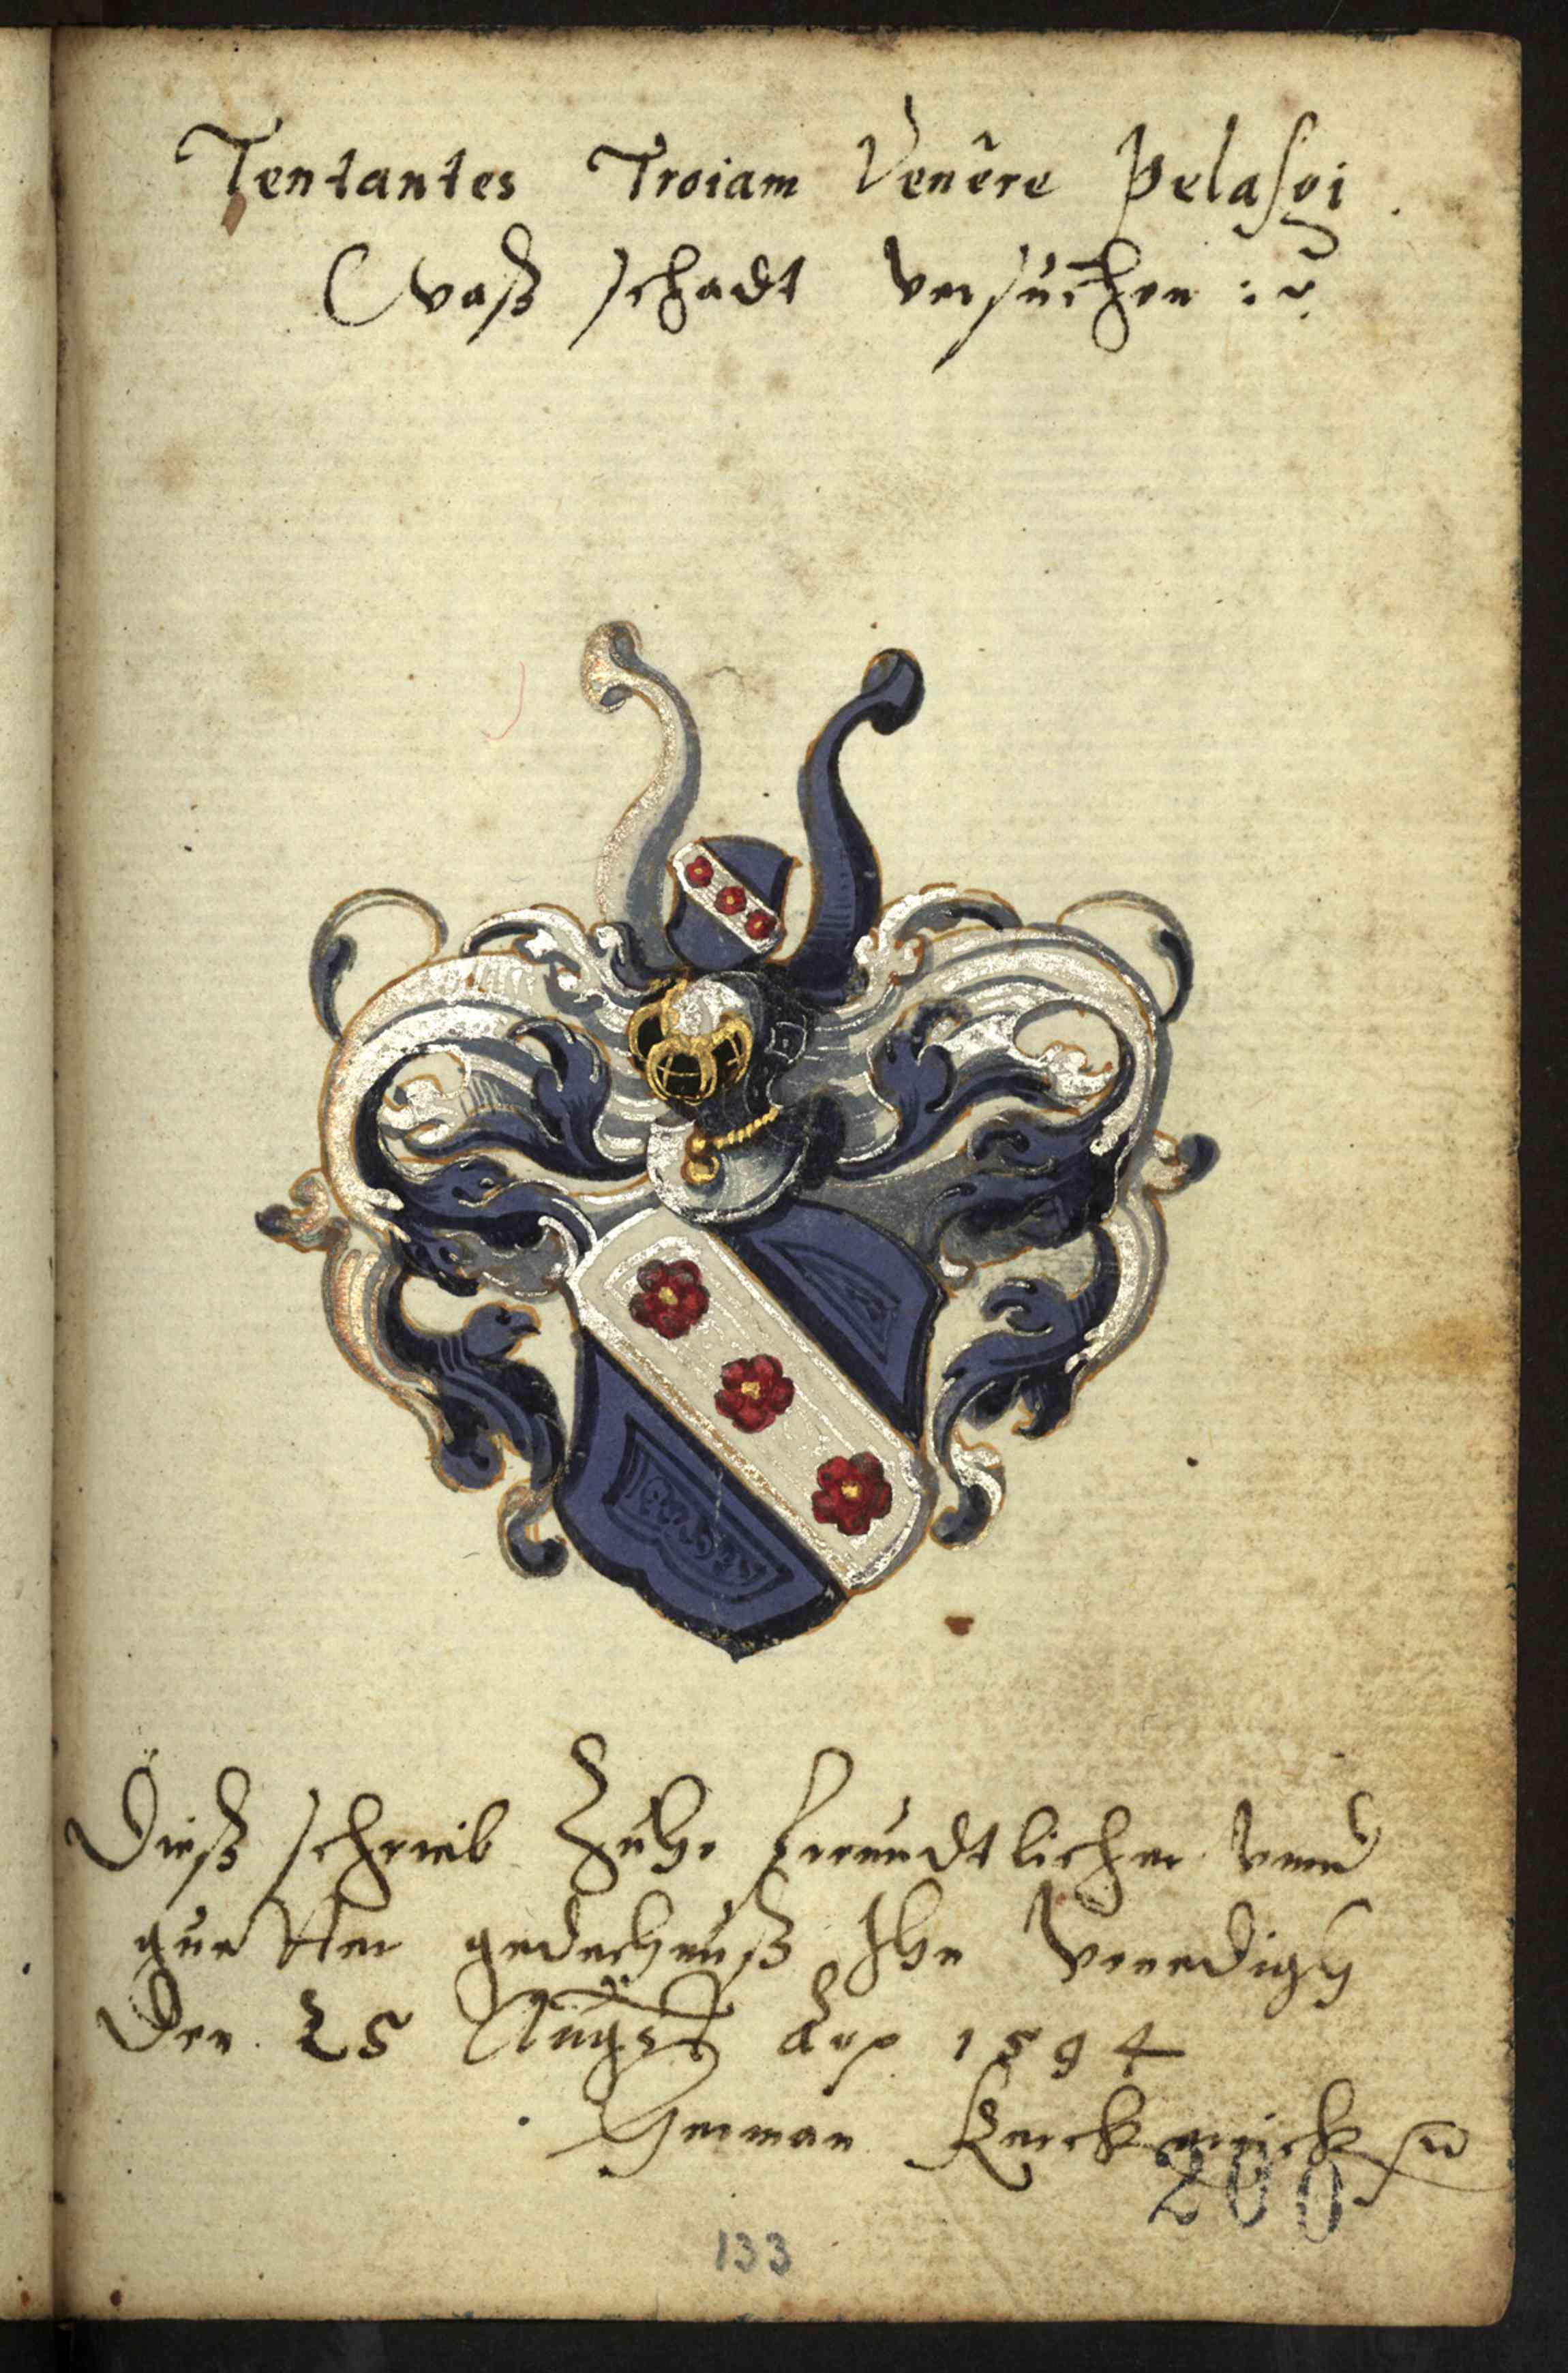 Tentantes Troiam Venêre Pelasgi.
Waß schadt versuchen :?
Dieß schreib Zuhr freundtlicher vnnd
guetter gedechnuß Ihn Venedigh
Den 25 August Aō 1594
Herman Kerckerinck
200
133